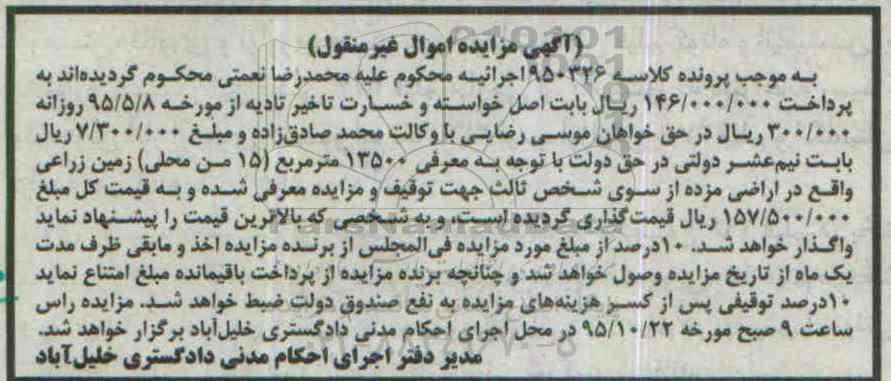 (آگهی مزایده اموال غیرمنقول)
به موجب پرونده کلاسه ۹۵۰۳۲۶ اجرائیه محکوم علیه محمدرضا نعمتی محکوم گردیده‌اند به
پرداخت ۱۴۶/۰۰۰/۰۰۰ ریال بابت اصل خواسته و خسارت تاخیر تادیه از مورخه ۹۵/۵/۸ روزانه
۳۰۰/۰۰۰ ریال در حق خواهان موسی رضایی با وکالت محمد صادق‌زاده و مبلغ ۷/۳۰۰/۰۰۰ ریال
بابت نیم‌عشر دولتی در حق دولت با توجه به معرفی ۱۳۵۰۰ مترمربع (۱۵ من محلی) زمین زراعی
واقع در اراضی مزده از سوی شخص ثالث جهت توقیف و مزایده معرفی شده و به قیمت کل مبلغ
۱۵۷/۵۰۰/۰۰۰ ریال قیمت‌گذاری گردیده است، و به شخصی که بالاترین قیمت را پیشنهاد نماید
واگذار خواهد شد. ۱۰درصد از مبلغ مورد مزایده فی‌المجلس از برنده مزایده اخذ و مابقی ظرف مدت
یک ماه از تاریخ مزایده وصول خواهد شد و چنانچه برنده مزایده از پرداخت باقیمانده مبلغ امتناع نماید
۱۰درصد توقیفی پس از کسر هزینه‌های مزایده به نفع صندوق دولت ضبط خواهد شد. مزایده راس
ساعت ۹ صبح مورخه ۹۵/۱۰/۲۲ در محل اجرای احکام مدنی دادگستری خلیل‌آباد برگزار خواهد شد.
مدیر دفتر اجرای احکام مدنی دادگستری خلیل‌آباد
ParsNamadData